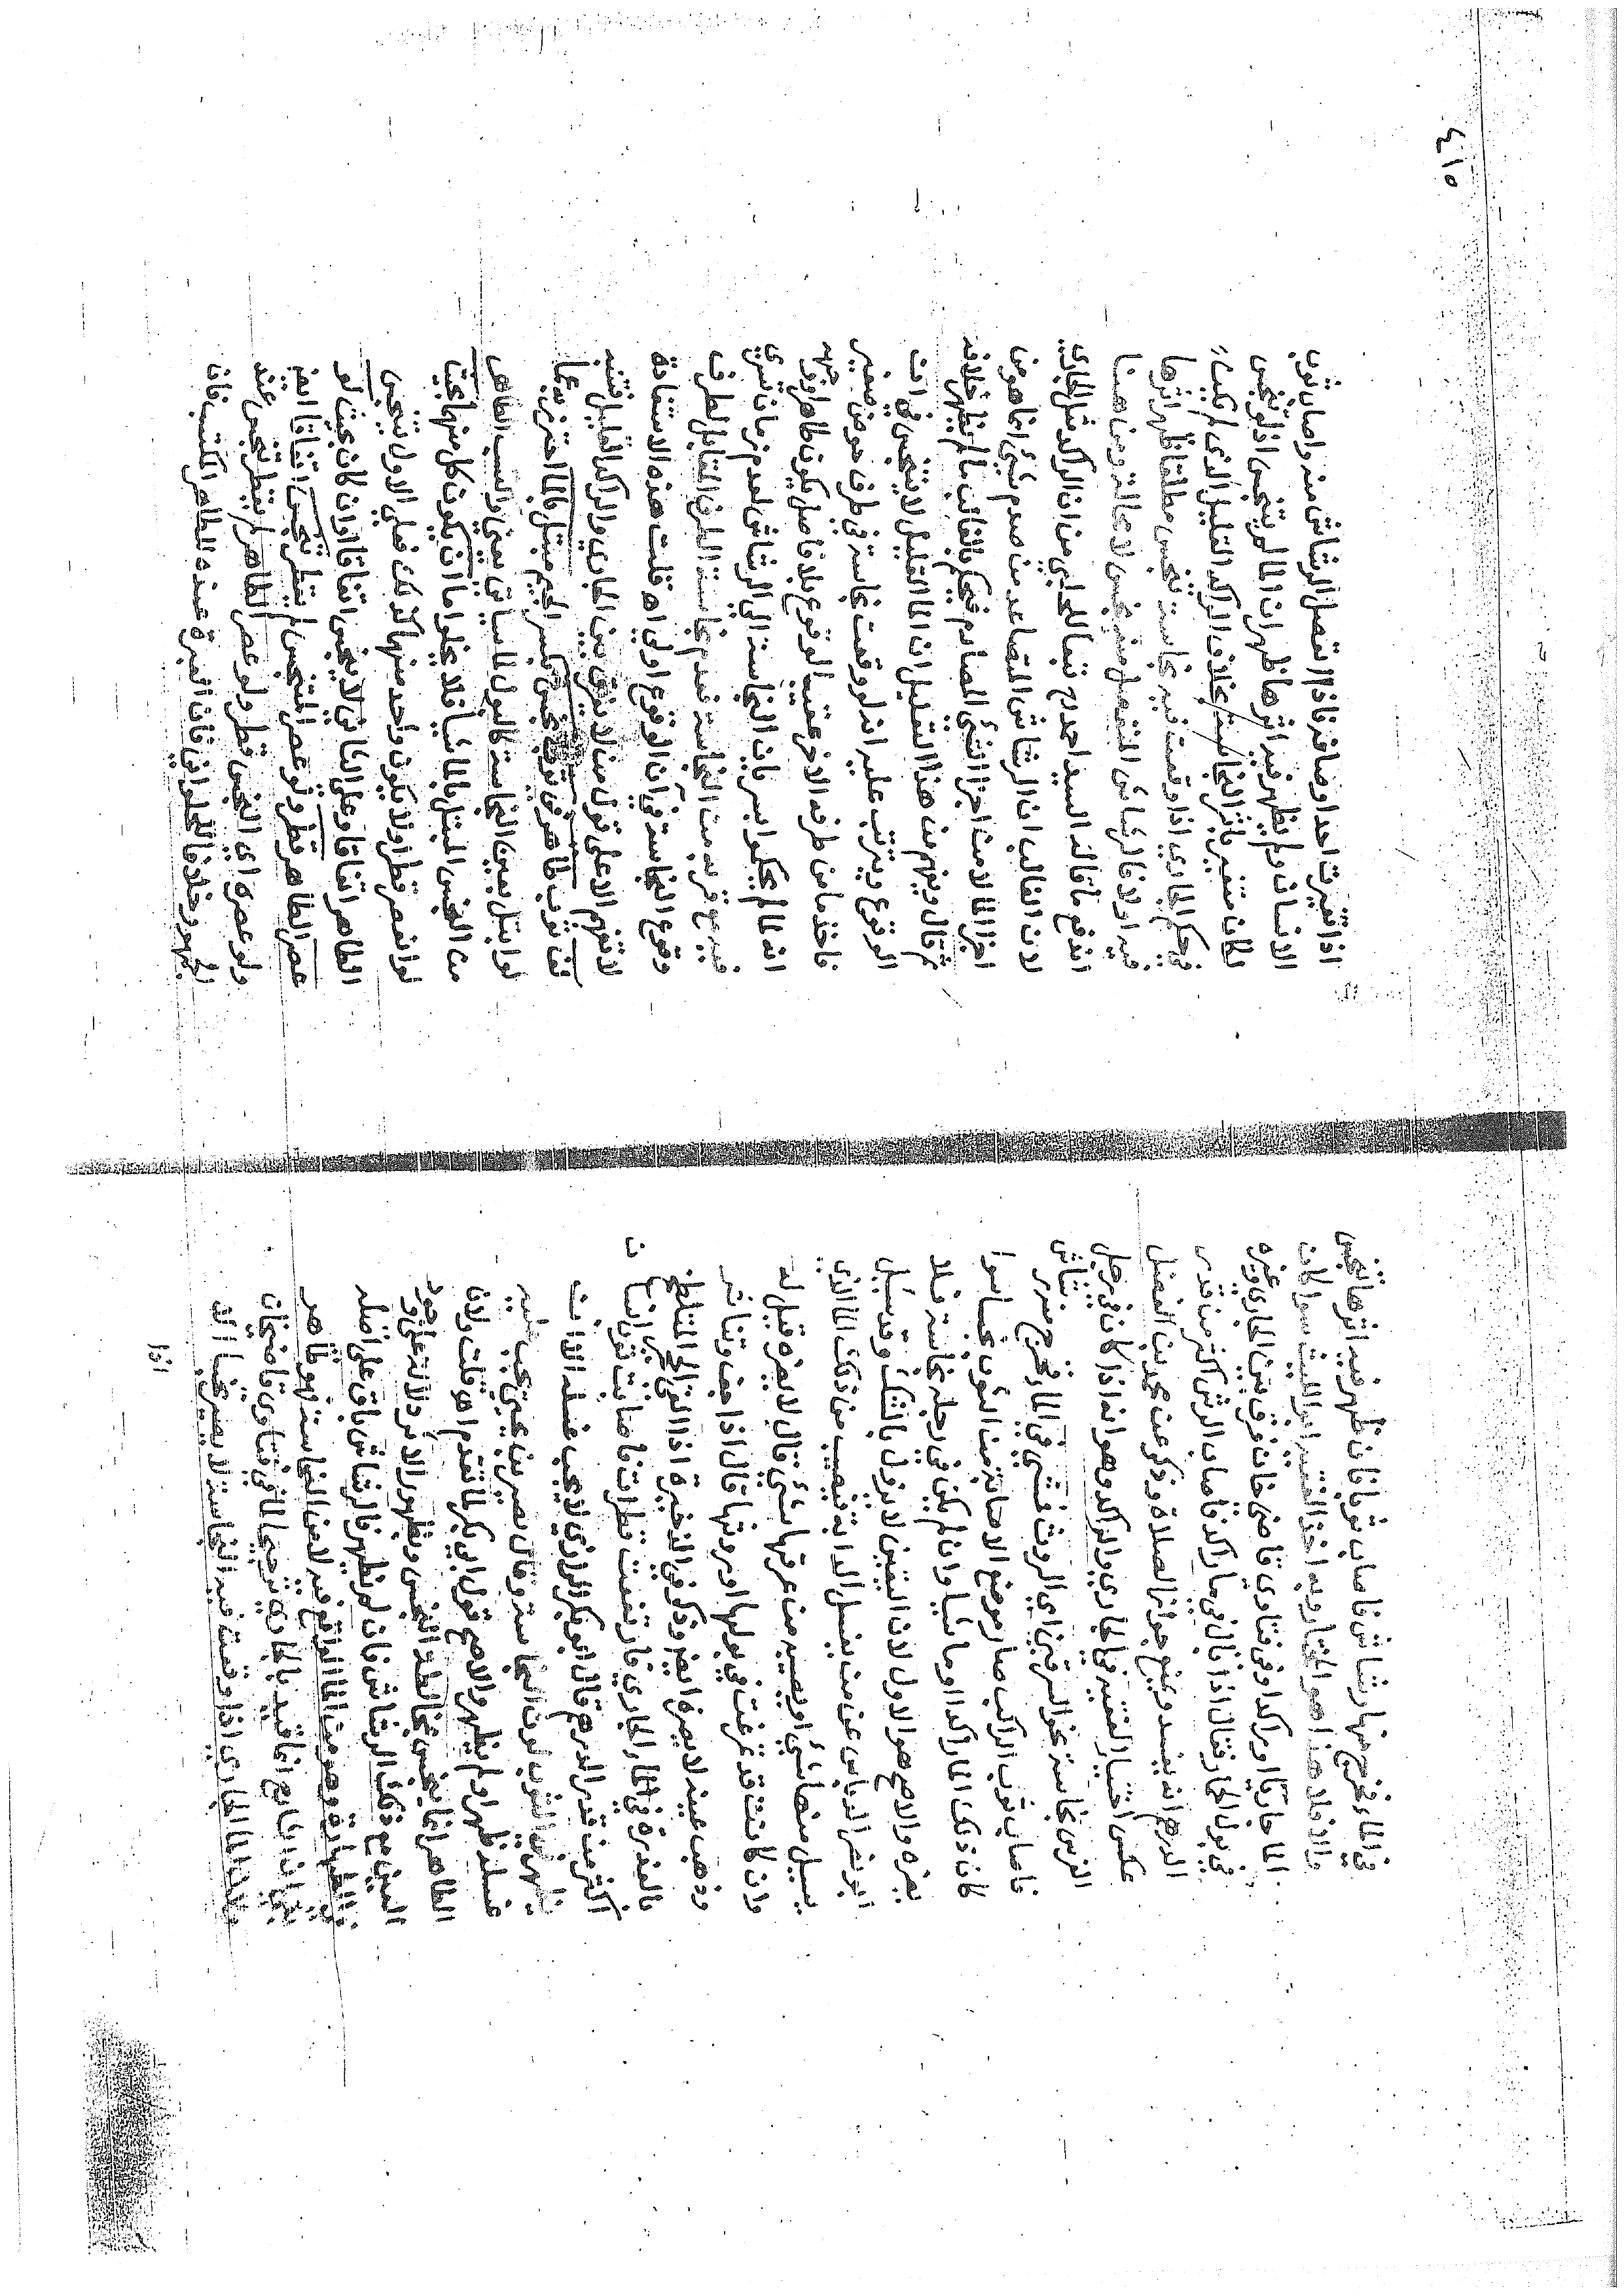 في الماء فخرج منها رشاش فاصاب ثوبا فان ظهر فيه اثرها تنجس
والا فلا هذا هو المختار وبه اخذ الفقيه ابو الليث سوا كان
الما جاريا او راكدا وفي فتاوى قاضي خان فرق بين الجاري وغيره
في بول الحمار فقال اذا بال في ما راكد فاصاب الرش اكثر من قدر
الدرهم انه يفسد ويمنع جواز الصلاة وذكر عن محمد بن الفضل
عكس اختيار الفقيه في الجاري والراكد وهو انه اذا كان في رجل
الفرس نجاسة نحو السرقين اي الروث فمشى في الما فخرج منه رشاش
فاصاب ثوب الراكب صار موضع الاصابة من الثوب نجسا سوا
كان ذلك الما راكدا او جاريا وان لم يكن في رجله نجاسة فلا
يضره والاصح هو الاول لان اليقين لا يزول بالشك وقد سئل
ابو نصر الدباس عن من يغسل الدابة فيصيب من ذلك الما الذي
يسيل منها شيء او يصيبه من عرقها شيء قال لا يضره قيل له
وان كانت قد تمرغت في بولها او روثها قال اذا جف وتناثر
وذهب عينه لا يضره ايضا وذكر في الذخيرة اذا القى الحجر المتلطخ
بالعذرة في الماء الجاري فارتفعت قطرات فاصابت ثوب انسان
اكثر من قدر الدرهم قال ابو بكر الرازي لا يجب غسله الا ان
يظهر في الثوب لون النجاسة وقال نصير بن يحيى يجب عليه
غسله ظهر او لم يظهر والاصح قول ابي بكر لما تقدم اهـ قلت ولان
الطاهر انما ينجس بمخالطة النجس وظهور الاثر دلالة على وجود
العين مع ذلك الرشاش فان لم يظهر فالرشاش باق على اصله
في الطهارة وهو من الما الواقع فيه لا من النجاسة فهو طاهر
ثم ان الشارح انما قيد بالجاري ترجيحا لما في فتاوى قاضيخان
ولان الما الجاري اذا وقعت فيه النجاسة لا يصير نجسا الا
اذا
٤١٥
اذا تغيرت احد اوصافه فاذا انفصل الرشاش منه واصاب ثوب
الانسان ولم يظهر فيه اثرها ظهر ان الما لم يتنجس اذ لو تنجس
لكان متغيرا باثر النجاسة بخلاف الراكد القليل الذي لم يكن
في حكم الجاري اذا وقعت فيه نجاسة تنجس مطلقا ظهر اثرها
فيه او لا فالرشاش المنفصل منه نجس لا محالة ومن هنا
اندفع ما قاله السيد احمد رح تبعا للحلبي من ان الراكد مثل الجاري
لان الغالب ان الرشاش المتصاعد من صدم شيء انما هو من
اجزا الما لا من اجزا الشيء الصادم فيحكم بالغالب ما لم يظهر خلافه
ثم قال ويفهم من هذا التعليل ان الما القليل لا يتنجس في ان
الوقوع ويترتب عليه انه لو وقعت نجاسة في طرف حوض صغير
فاخذ ما من طرفه الاخر عقب الوقوع بلا فاصل يكون طاهرا ووجهه
انه لما لم يحكموا بسريان النجاسة الى الرشاش لعدم زمان تسري
فيه مع قربه من النجاسة فعدم نجاسة الطرف المقابل لطرف
وقوع النجاسة في ان الوقوع اولى اهـ قلت هذه الاستفادة
لا تفهم الا على قول من لا يفرق بين الجاري والراكد القليل فتنبه
لف ثوب طاهر في ثوب نجس بكسر الجيم مبتل بالما احترز به عما
لو ابتل بعين النجاسة كالبول لما سياتي يعني واكتسب الطاهر
من النجس المبتل بالما شيئا فلا يخلوا ما ان يكون كل منهما بحيث
لو انعصر قطر او لا يكون واحد منهما كذلك فعلى الاول يتنجس
الطاهر اتفاقا وعلى الثاني لا يتنجس اتفاقا وان كان بحيث لو
عصر الطاهر قطر ولو عصر المتنجس لم يقطر تنجس اتفاقا ايضا
ولو عصر اي النجس قطر ولو عصر الطاهر لم يقطر تنجس عند
الجمهور خلافا للحلواني فان العبرة عنده للطاهر المكتسب فان